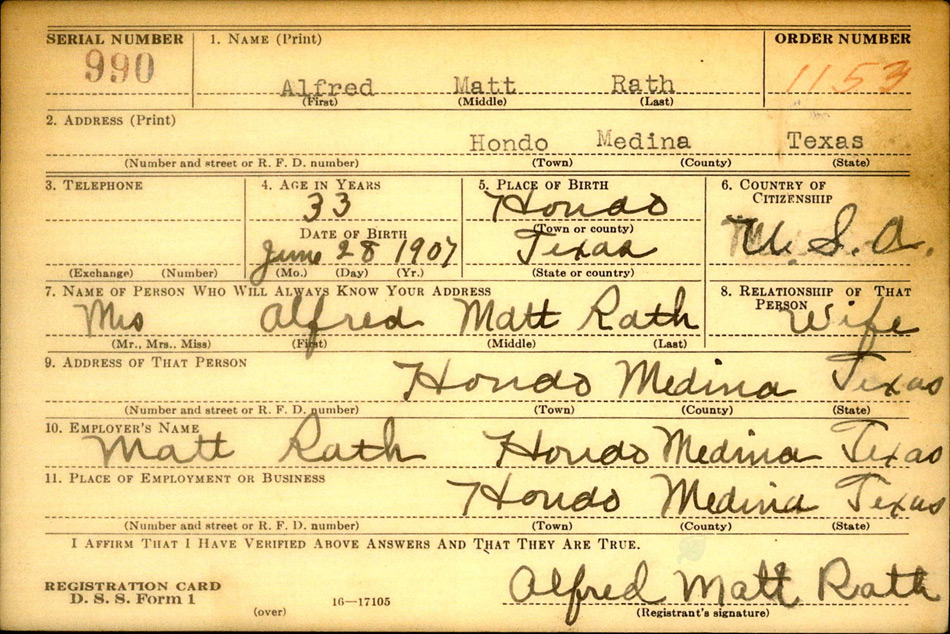 SERIAL NUMBER 1. NAME (Print) ORDER NUMBER
990 Alfred Matt Rath 1153
(First) (Middle) (Last)
2. ADDRESS (Print)
Hondo Medina Texas
(Number and street or R. F. D. number) (Town) (County) (State)
3. TELEPHONE 4. AGE IN YEARS 5. PLACE OF BIRTH 6. COUNTRY OF CITIZENSHIP
33 Hondo
DATE OF BIRTH (Town or county)
June 28 1907 Texas U. S. A.
(Exchange) (Number) (Mo.) (Day) (Yr.) (State or country)
7. NAME OF PERSON WHO WILL ALWAYS KNOW YOUR ADDRESS 8. RELATIONSHIP OF THAT PERSON
Mrs Alfred Matt Rath Wife
(Mr., Mrs., Miss) (First) (Middle) (Last)
9. ADDRESS OF THAT PERSON
Hondo Medina Texas
(Number and street or R. F. D. number) (Town) (County) (State)
10. EMPLOYER'S NAME
Matt Rath Hondo Medina Texas
11. PLACE OF EMPLOYMENT OR BUSINESS
Hondo Medina Texas
(Number and street or R. F. D. number) (Town) (County) (State)
I AFFIRM THAT I HAVE VERIFIED ABOVE ANSWERS AND THAT THEY ARE TRUE.
REGISTRATION CARD
D. S. S. Form 1 16—17105 Alfred Matt Rath
(over) (Registrant's signature)